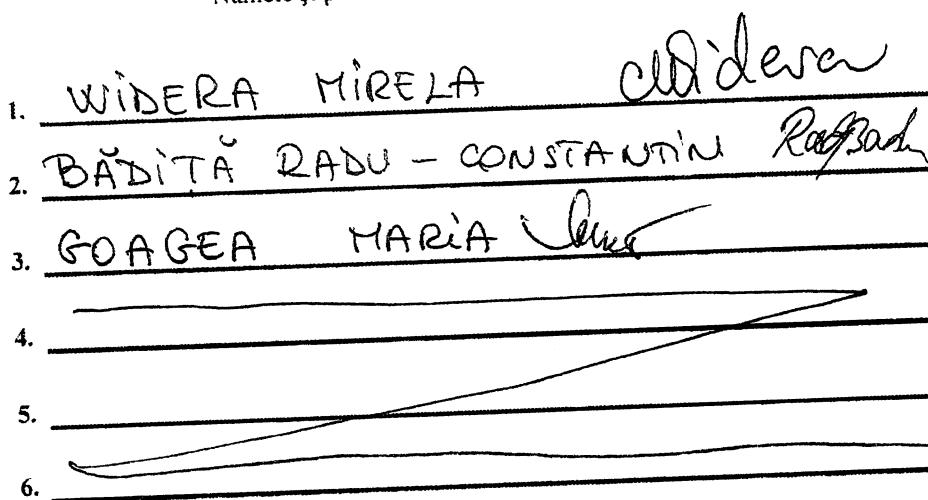 Numele și p
1. WIDERA MIRELA
2. BĂDIȚĂ RADU - CONSTANTIN
3. GOAGEA MARIA
4.
5.
6.